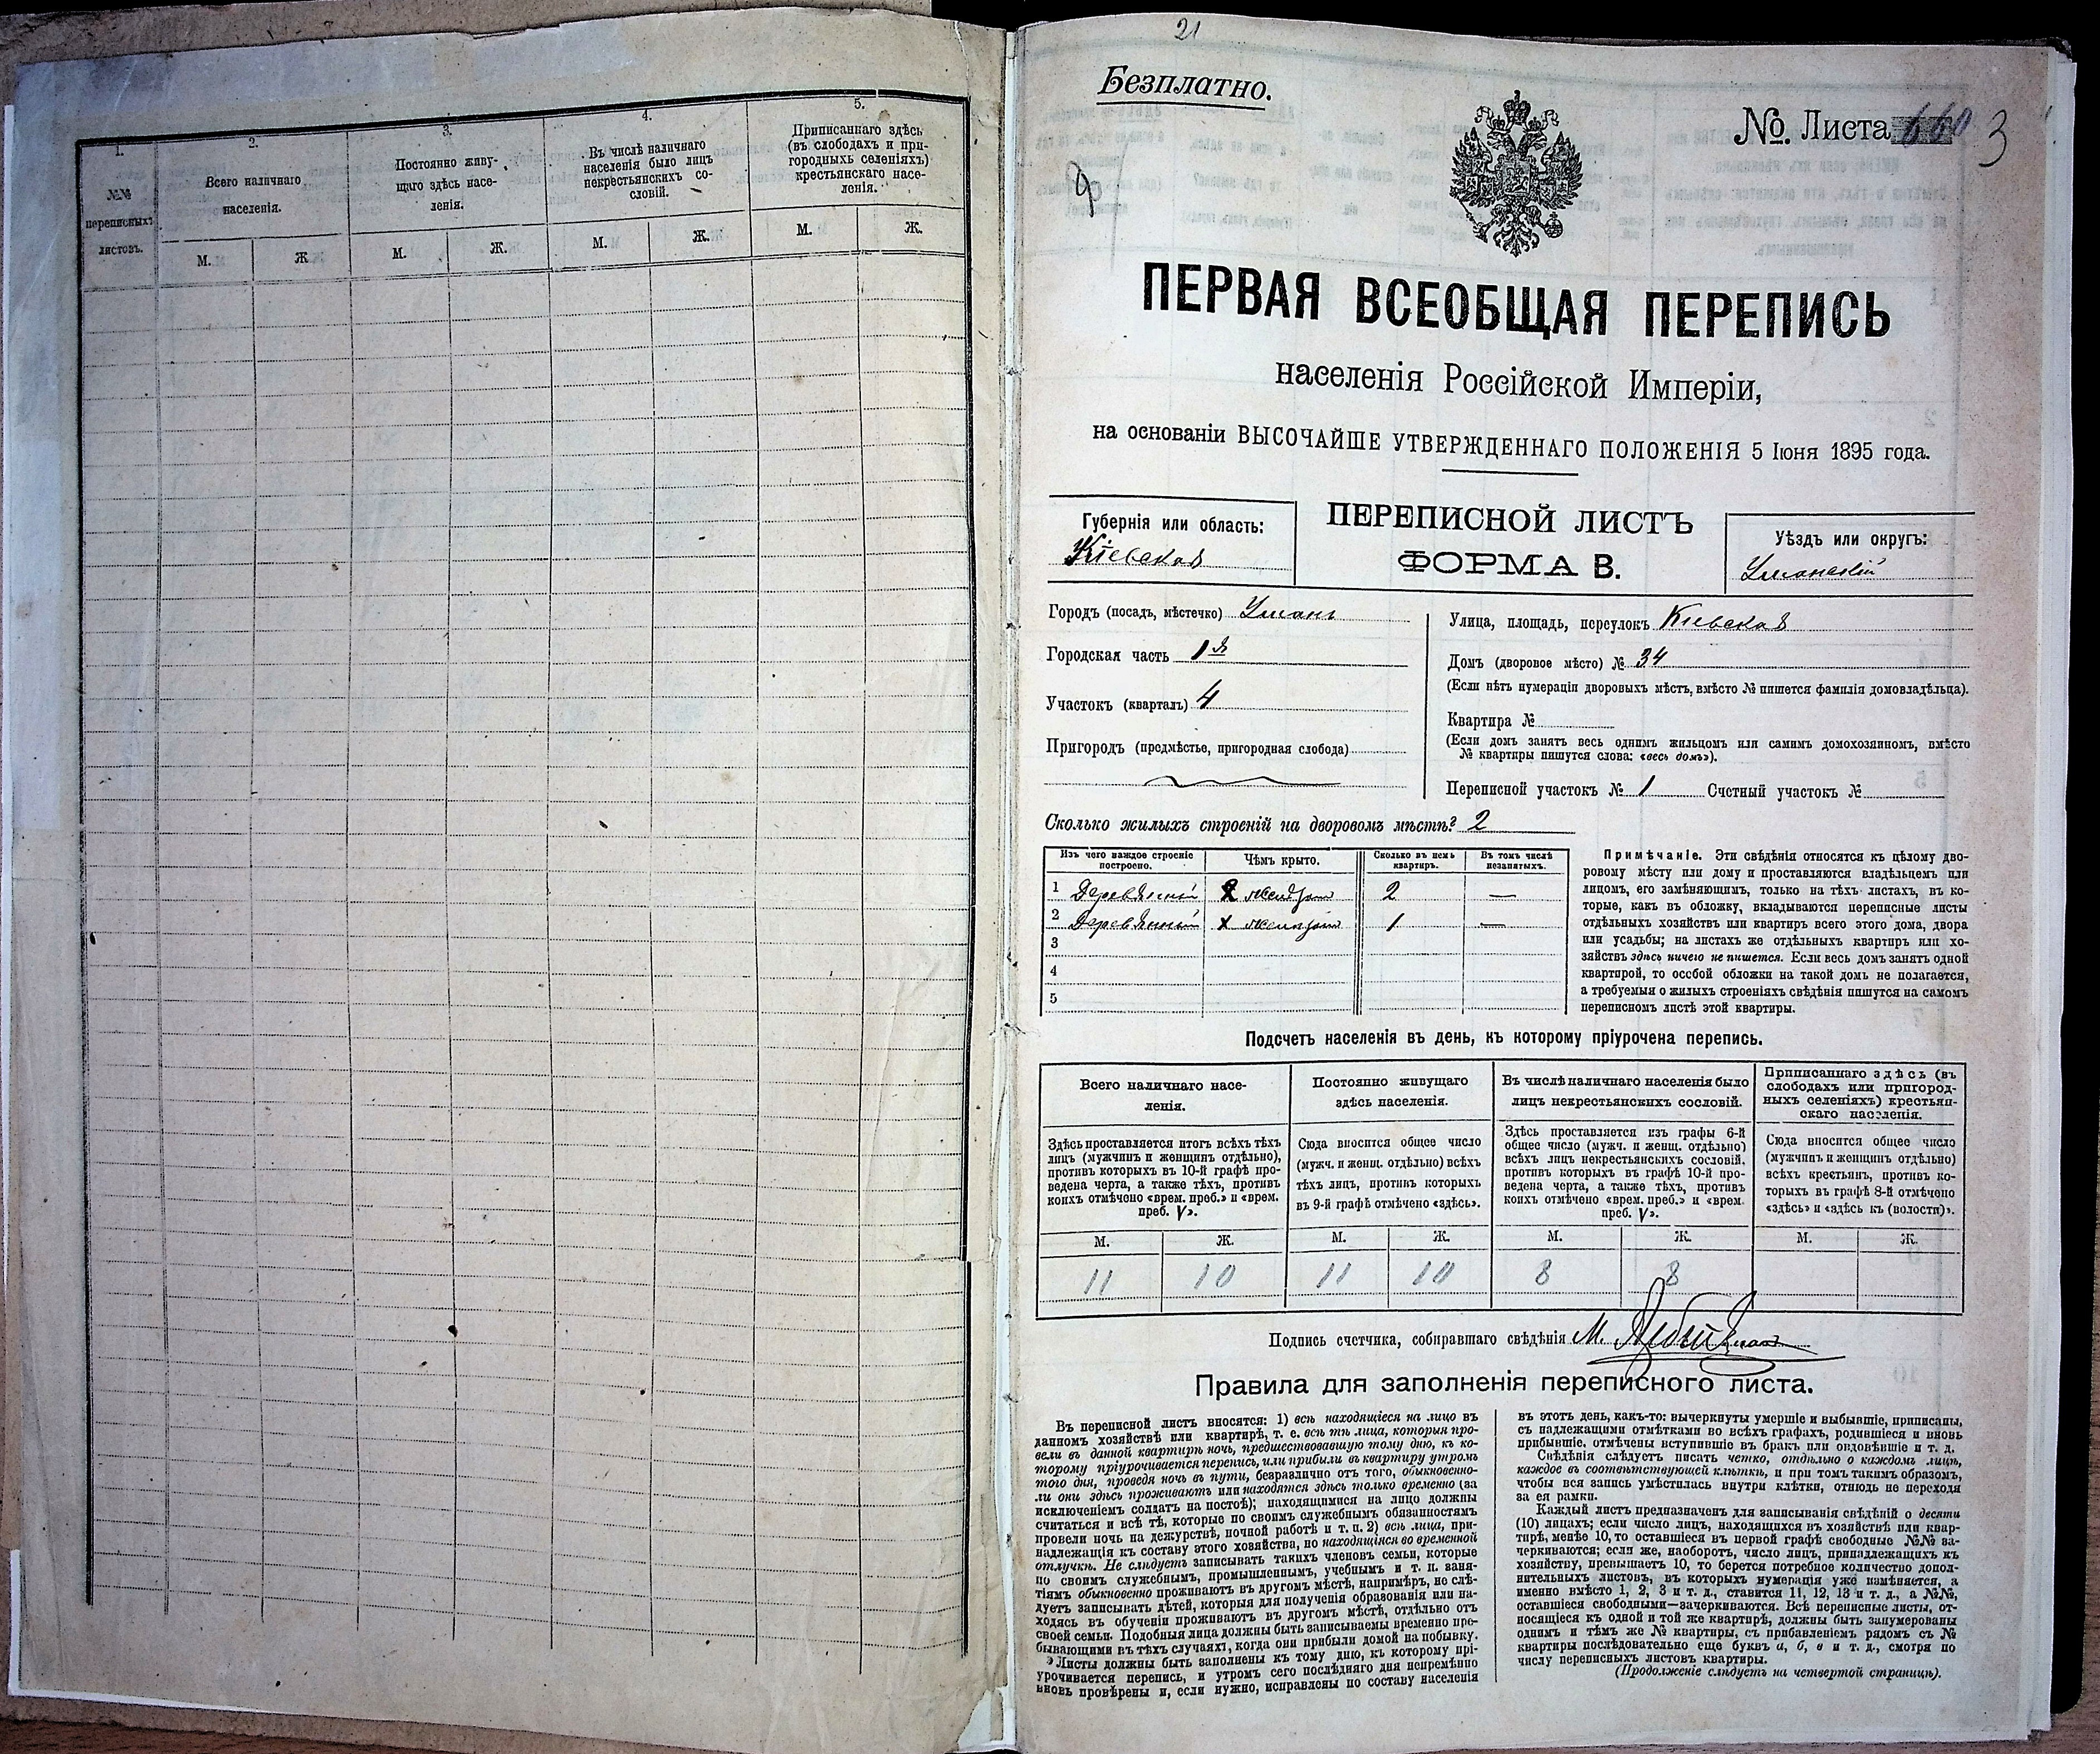 1.
№№
переписныхъ
листовъ.
2.
Всего наличнаго
населенія.
М.
Ж.
3.
Постоянно живу-
щаго здѣсь насе-
ленія.
М.
Ж.
4.
Въ числѣ наличнаго
населенія было лицъ
некрестьянскихъ со-
словій.
М.
Ж.
5.
Приписаннаго здѣсь
(въ слободахъ и при-
городныхъ селеніяхъ)
крестьянскаго насе-
ленія.
М.
Ж.
21
Безплатно.
№ Листа 3
ПЕРВАЯ ВСЕОБЩАЯ ПЕРЕПИСЬ
населенія Россійской Имперіи,
на основаніи ВЫСОЧАЙШЕ УТВЕРЖДЕННАГО ПОЛОЖЕНІЯ 5 Іюня 1895 года.
Губернія или область:
Кіевская
ПЕРЕПИСНОЙ ЛИСТЪ
ФОРМА В.
Уѣздъ или округъ:
Уманскій
Городъ (посадъ, мѣстечко) Умань
Городская часть 1я
Участокъ (кварталъ) 4
Пригородъ (предмѣстье, пригородная слобода)
Улица, площадь, переулокъ Кіевская
Домъ (дворовое мѣсто) № 34
(Если нѣтъ нумераціи дворовыхъ мѣстъ, вмѣсто № пишется фамилія домовладѣльца).
Квартира №
(Если домъ занятъ весь однимъ жильцомъ или самимъ домохозяиномъ, вмѣсто
№ квартиры пишутся слова: «весь домъ»).
Переписной участокъ № 1 Счетный участокъ №
Сколько жилыхъ строеній на дворовомъ мѣстѣ? 2
Изъ чего каждое строеніе
построено.
Чѣмъ крыто.
Сколько въ немъ
квартиръ.
Въ томъ числѣ
незанятыхъ.
1 Деревянный желѣзомъ 2 —
2 Деревянный желѣзомъ 1 —
3
4
5
Примѣчаніе. Эти свѣдѣнія относятся къ цѣлому дво-
ровому мѣсту или дому и проставляются владѣльцемъ или
лицомъ, его замѣняющимъ, только на тѣхъ листахъ, въ ко-
торые, какъ въ обложку, вкладываются переписные листы
отдѣльныхъ хозяйствъ или квартиръ всего этого дома, двора
или усадьбы; на листахъ же отдѣльныхъ квартиръ или хо-
зяйствъ здѣсь ничего не пишется. Если весь домъ занятъ одной
квартирой, то особой обложки на такой домъ не полагается,
а требуемыя о жилыхъ строеніяхъ свѣдѣнія пишутся на самомъ
переписномъ листѣ этой квартиры.
Подсчетъ населенія въ день, къ которому пріурочена перепись.
Всего наличнаго насе-
ленія.
Здѣсь проставляется итогъ всѣхъ тѣхъ
лицъ (мужчинъ и женщинъ отдѣльно),
противъ которыхъ въ 10-й графѣ про-
ведена черта, а также тѣхъ, противъ
коихъ отмѣчено «врем. преб.» и «врем.
преб. V».
М. Ж.
11 10
Постоянно живущаго
здѣсь населенія.
Сюда вносится общее число
(мужч. и женщ. отдѣльно) всѣхъ
тѣхъ лицъ, противъ которыхъ
въ 9-й графѣ отмѣчено «здѣсь».
М. Ж.
11 10
Въ числѣ наличнаго населенія было
лицъ некрестьянскихъ сословій.
Здѣсь проставляется изъ графы 6-й
общее число (мужч. и женщ. отдѣльно)
всѣхъ лицъ некрестьянскихъ сословій,
противъ которыхъ въ графѣ 10-й про-
ведена черта, а также тѣхъ, противъ
коихъ отмѣчено «врем. преб.» и «врем.
преб. V».
М. Ж.
8 8
Приписаннаго здѣсь (въ
слободахъ или пригород-
ныхъ селеніяхъ) крестьян-
скаго населенія.
Сюда вносится общее число
(мужчинъ и женщинъ отдѣльно)
всѣхъ крестьянъ, противъ ко-
торыхъ въ графѣ 8-й отмѣчено
«здѣсь» и «здѣсь къ (волости)».
М. Ж.
Подпись счетчика, собиравшаго свѣдѣнія М.
Правила для заполненія переписного листа.
Въ переписной листъ вносятся: 1) всѣ находящіеся на лицо въ
данномъ хозяйствѣ или квартирѣ, т. е. всѣ тѣ лица, которыя про-
вели въ данной квартирѣ ночь, предшествовавшую тому дню, къ ко-
торому пріурочивается перепись, или прибыли въ квартиру утромъ
того дня, проведя ночь въ пути, безразлично отъ того, обыкновенно-
ли они здѣсь проживаютъ или находятся здѣсь только временно (за
исключеніемъ солдатъ на постоѣ); находящимися на лицо должны
считаться и всѣ тѣ, которые по своимъ служебнымъ обязанностямъ
провели ночь на дежурствѣ, ночной работѣ и т. п. 2) всѣ лица, при-
надлежащія къ составу этого хозяйства, но находящіяся во временной
отлучкѣ. Не слѣдуетъ записывать такихъ членовъ семьи, которые
по своимъ служебнымъ, промышленнымъ, учебнымъ и т. п. заня-
тіямъ обыкновенно проживаютъ въ другомъ мѣстѣ, напримѣръ, не слѣ-
дуетъ записывать дѣтей, которыя для полученія образованія или на-
ходясь въ обученіи проживаютъ въ другомъ мѣстѣ, отдѣльно отъ
своей семьи. Подобныя лица должны быть записываемы временно пре-
бывающими въ тѣхъ случаяхъ, когда они прибыли домой на побывку.
Листы должны быть заполнены къ тому дню, къ которому прі-
урочивается перепись, и утромъ сего послѣдняго дня непремѣнно
вновь провѣрены и, если нужно, исправлены по составу населенія
въ этотъ день, какъ-то: вычеркнуты умершіе и выбывшіе, приписаны,
съ надлежащими отмѣтками во всѣхъ графахъ, родившіеся и вновь
прибывшіе, отмѣчены вступившіе въ бракъ или овдовѣвшіе и т. д.
Свѣдѣнія слѣдуетъ писать четко, отдѣльно о каждомъ лицѣ,
каждое въ соотвѣтствующей клѣткѣ, и при томъ такимъ образомъ,
чтобы вся запись умѣстилась внутри клѣтки, отнюдь не переходя
за ея рамки.
Каждый листъ предназначенъ для записыванія свѣдѣній о десяти
(10) лицахъ; если число лицъ, находящихся въ хозяйствѣ или квар-
тирѣ, менѣе 10, то оставшіеся въ первой графѣ свободные №№ за-
черкиваются; если же, наоборотъ, число лицъ, принадлежащихъ къ
хозяйству, превышаетъ 10, то берется потребное количество допол-
нительныхъ листовъ, въ которыхъ нумерація уже измѣняется, а
именно вмѣсто 1, 2, 3 и т. д., ставится 11, 12, 13 и т. д., а №№,
оставшіеся свободными—зачеркиваются. Всѣ переписные листы, от-
носящіеся къ одной и той же квартирѣ, должны быть занумерованы
однимъ и тѣмъ же № квартиры, съ прибавленіемъ рядомъ съ №
квартиры послѣдовательно еще буквъ а, б, в и т. д., смотря по
числу переписныхъ листовъ квартиры.
(Продолженіе слѣдуетъ на четвертой страницѣ).